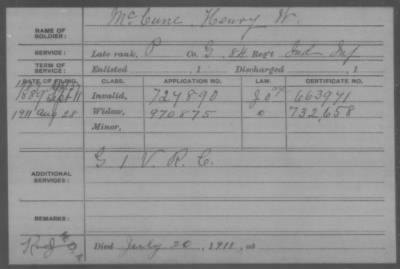 NAME OF SOLDIER: McCune, Henry W.
SERVICE: Late rank, P Co. G, 84 Reg't Ind. Inf
TERM OF SERVICE: Enlisted , 1 Discharged , 1
DATE OF FILING. CLASS. APPLICATION NO. LAW. CERTIFICATE NO.
1889 Invalid, 724890 663971
1911 Aug 28 Widow, 970875 732,658
Minor,
ADDITIONAL SERVICES: G 1 V. R. C.
REMARKS:
Died July 20, 1911, at